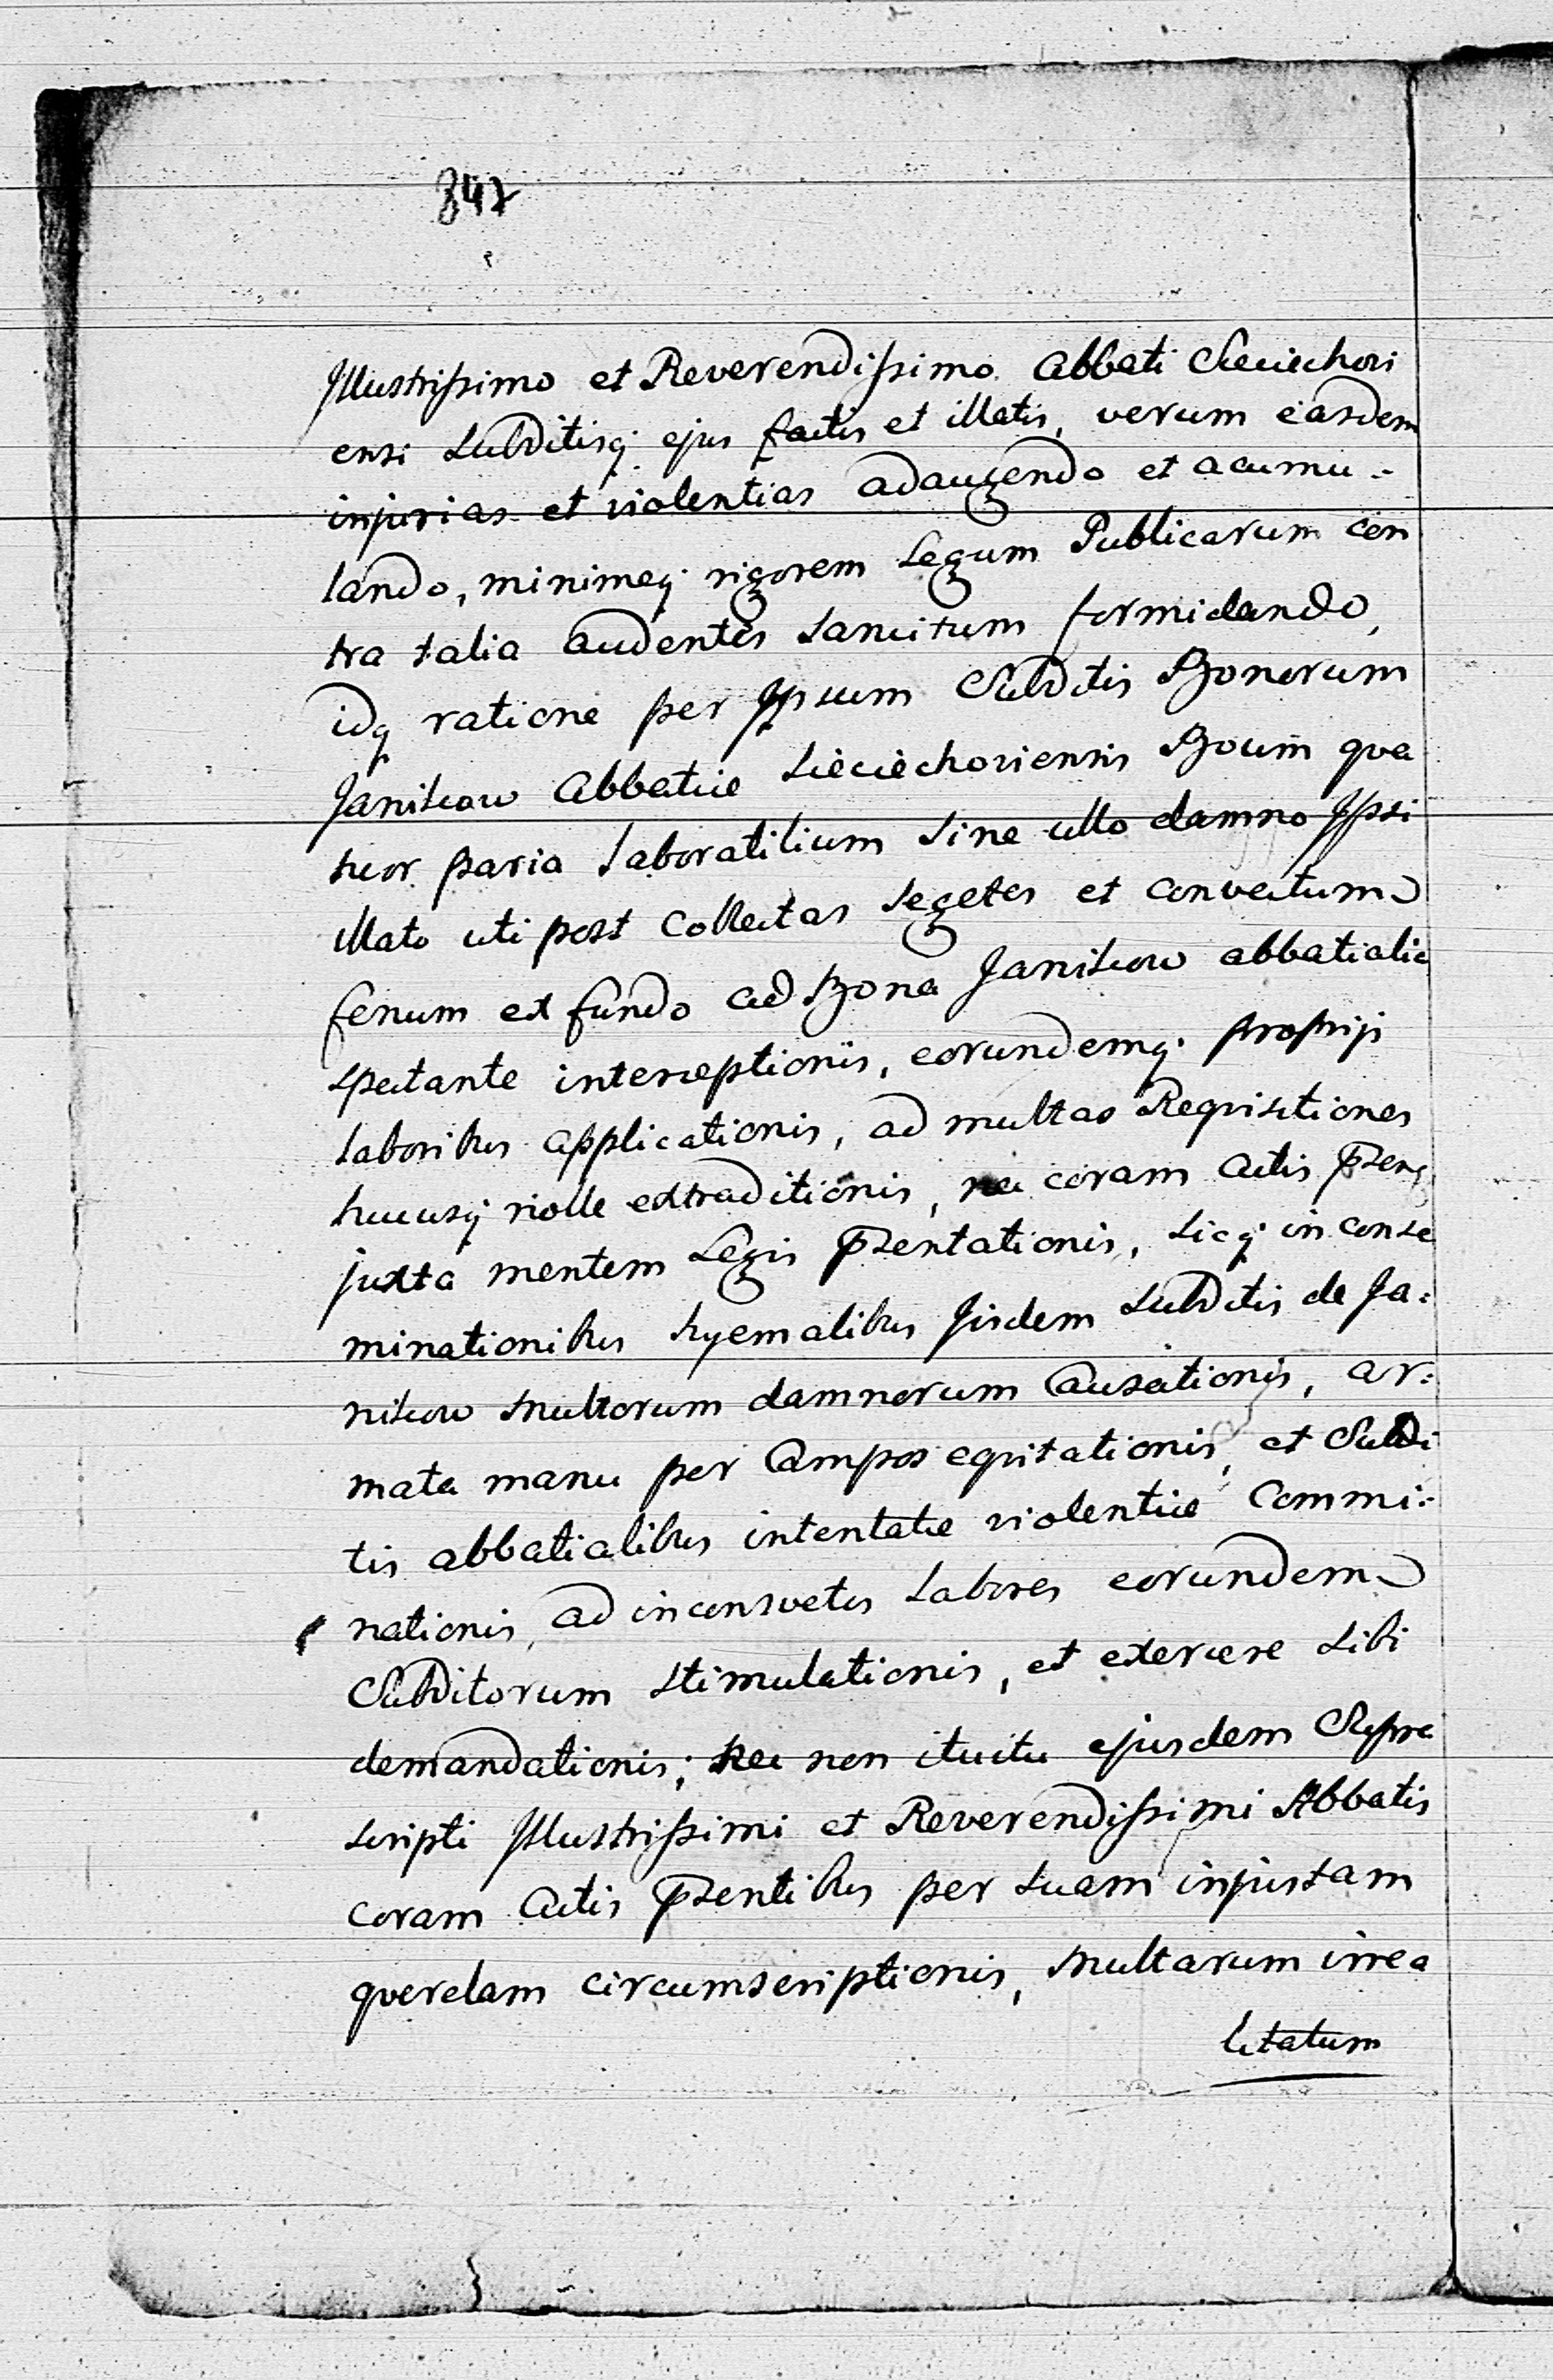 847
Illustrissimo et Reverendissimo Abbati Sieciechovi
ensi Subditisq; ejus factis et illatis, verum easdem
injurias et violentias adaugendo et acumu-
lando, minimeq; rigorem Legum Publicarum con
tra talia audentes Sancitum formidando,
idq ratione per Ipsum Subditis Bonorum
Janikow Abbatiæ Sieciechoviensis Boum qua
tuor paria Laboratilium Sine ullo damno Ipsi
illato uti post Collectas Segetes et Convectum
fenum ex fundo ad Bona Janikow abbatialia
spectante interceptionis, eorundemq; proprijs
Laboribus applicationis, ad multas Requisitiones
hucusq; nolle extraditionis, nec coram Actis p̄sen,
juxta mentem Legis p̄sentationis, Sicq; in conse
minationibus hyemalibus Iisdem Subditis de Ja-
nikow Multorum damnorum Causationis, ar-
mata manu per Campos equitationis, et Subdi
tis abbatialibus intentatæ violentiæ Commi-
nationis, ad inconsvetos Labores eorundem
Subditorum Stimulationis, et exercere Sibi
demandationis; Nec non ituitu ejusdem Supra
scripti Illustrissimi et Reverendissimi Abbatis
coram Actis p̄sentibus per Suam injustam
querelam circumscriptionis, Multarum irrea
litatum